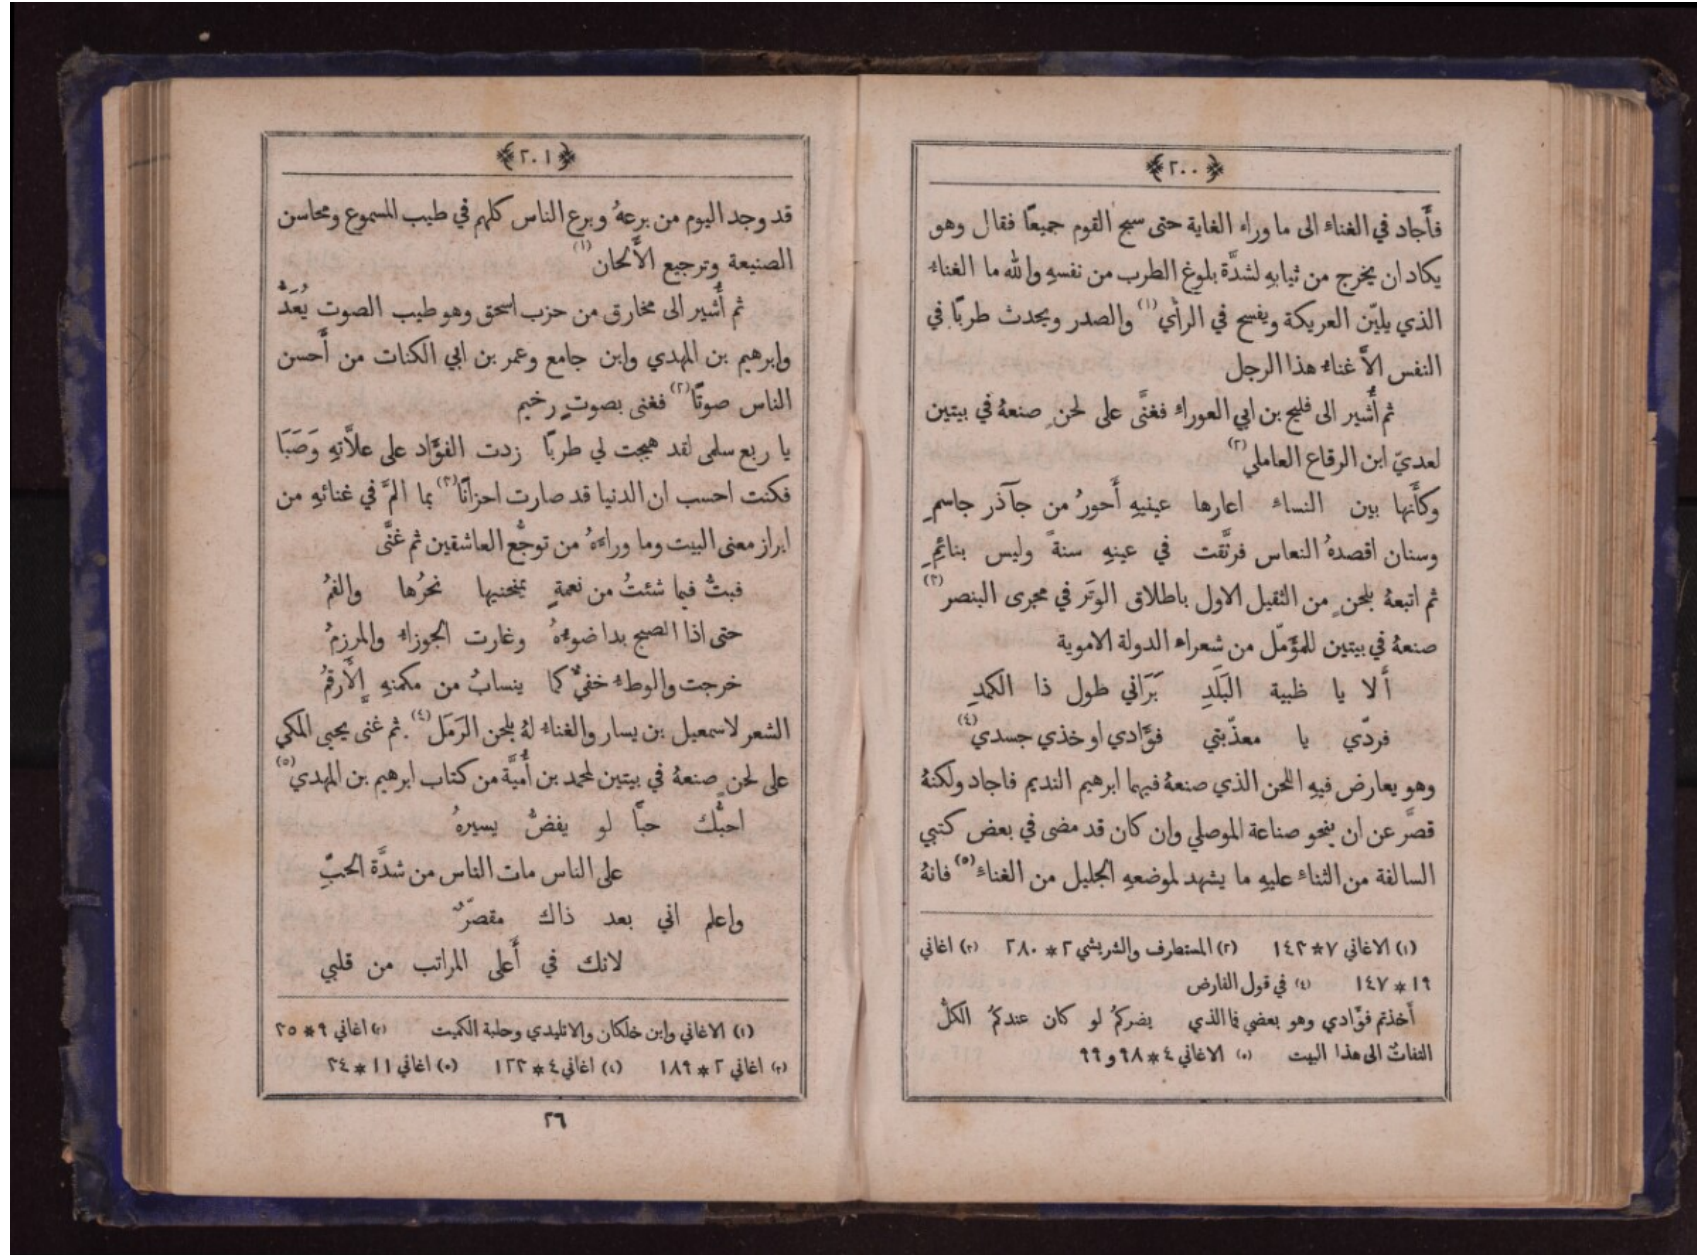 ﴿٢٠٠﴾
فأَجاد في الغناء الى ما وراء الغاية حتى سبح القوم جميعًا فقال وهو
يكاد ان يخرج من ثيابهِ لشدَّة بلوغ الطرب من نفسهِ والله ما الغناء
الذي يليّن العريكة ويفسح في الرأي(١) والصدر ويحدث طربًا في
النفس الاَّ غناء هذا الرجل
ثم أُشير الى فليح بن ابي العوراء فغنَّى على لحنٍ صنعهُ في بيتين
لعديّ ابن الرقاع العاملي(٢)
وكأَنها بين النساء اعارها عينيهِ أَحورُ من جآذر جاسمِ
وسنان اقصدهُ النعاس فرنَّقت في عينهِ سنةً وليس بنائمِ
ثم اتبعهُ بلحنٍ من الثقيل الاول باطلاق الوتَر في مجرى البنصر(٣)
صنعهُ في بيتين للمؤَمّل من شعراء الدولة الاموية
أَلا يا ظبية البَلَدِ بَرَاني طول ذا الكمدِ
فردّي يا معذّبتي فؤَادي او خذي جسدي(٤)
وهو يعارض فيهِ اللحن الذي صنعهُ فيهما ابرهيم النديم فاجاد ولكنهُ
قصَّر عن ان ينحو صناعة الموصلي وان كان قد مضى في بعض كتبي
السالفة من الثناء عليهِ ما يشهد لموضعهِ الجليل من الغناء(٥) فانهُ
(١) الاغاني ٧*١٤٢ (٢) المستطرف والشريشي ٢*٢٨٠ (٣) اغاني
١٩*١٤٧ (٤) في قول الفارض
أَخذتم فؤَادي وهو بعضي فما الذي يضركمُ لو كان عندكمُ الكلُّ
التفاتٌ الى هذا البيت (٥) الاغاني ٤*٩٨ و٩٩
﴿٢٠١﴾
قد وجد اليوم من برعهُ وبرع الناس كلهم في طيب المسموع ومحاسن
الصنيعة وترجيع الأَلحان(١)
ثم أُشير الى مخارق من حزب اسحق وهو طيب الصوت يُعَدُّ
وابرهيم بن المهدي وابن جامع وعمر بن ابي الكنات من أَحسن
الناس صوتًا(٢) فغنى بصوتٍ رخيم
يا ربع سلمى لقد هيجت لي طربًا زدت الفؤَاد على علاَّتهِ وَصَبَا
فكنت احسب ان الدنيا قد صارت احزانًا(٣) بما المَّ في غنائهِ من
ابراز معنى البيت وما وراءَهُ من توجُّع العاشقين ثم غنَّى
فبتُّ فيما شئتُ من نعمةٍ يمنحنيها نحرُها والفمُ
حتى اذا الصبح بدا ضوءُهُ وغارت الجوزاء والمرزمُ
خرجت والوطء خفيٌّ كما ينسابُ من مكمنهِ الأَرقمُ
الشعر لاسمعيل بن يسار والغناء لهُ بلحن الرَمَل(٤). ثم غنى يحيى المكي
على لحنٍ صنعهُ في بيتين لمحمد بن أُميَّة من كتاب ابرهيم بن المهدي(٥)
احبُّك حبًّا لو يفضُّ يسيرهُ
على الناس مات الناس من شدَّة الحبِّ
واعلم اني بعد ذاك مقصّرٌ
لانك في أَعلى المراتب من قلبي
(١) الاغاني وابن خلكان والاتليدي وحلبة الكميت (٢) اغاني ٩*٢٥
(٣) اغاني ٢*١٨٩ (٤) اغاني ٤*١٢٢ (٥) اغاني ١١*٢٤
٢٦